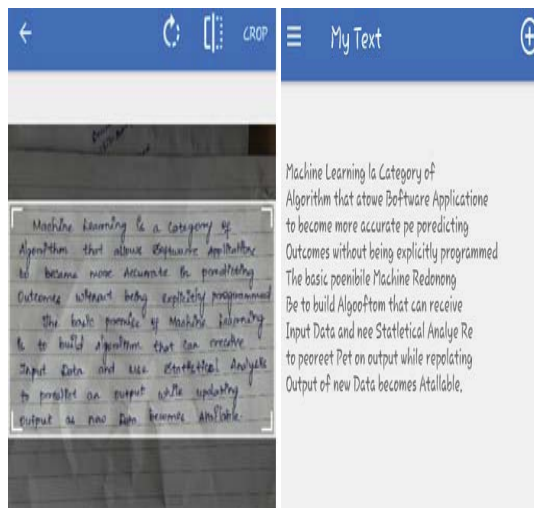 CROP
Machine Learning is a category of
Algorithm that allows Software Application
to become more accurate in poredicting
Outcomes without being explicitly programmed
The basic premise of Machine Learning
is to build algorithm that can receive
Input Data and use Statistical Analysis
to predict an output while updating
output as new Data becomes Available.
My Text
Machine Learning la Category of
Algorithm that atowe Boftware Applicatione
to become more accurate pe poredicting
Outcomes without being explicitly programmed
The basic poenibile Machine Redonong
Be to build Algooftom that can receive
Input Data and nee Statletical Analye Re
to peoreet Pet on output while repolating
Output of new Data becomes Atallable.